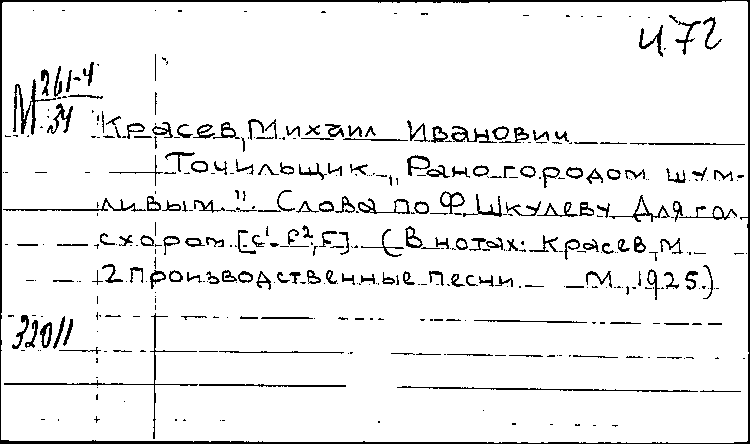 Ч72
М 261-4
34
Красев, Михаил Иванович
Точильщик „Рано городом шум-
ливым". Слова по Ф. Шкулеву Для гол.
с хором [c¹-f², F]. (В нотах: Красев, М.
2 производственные песни М., 1925.)
32011